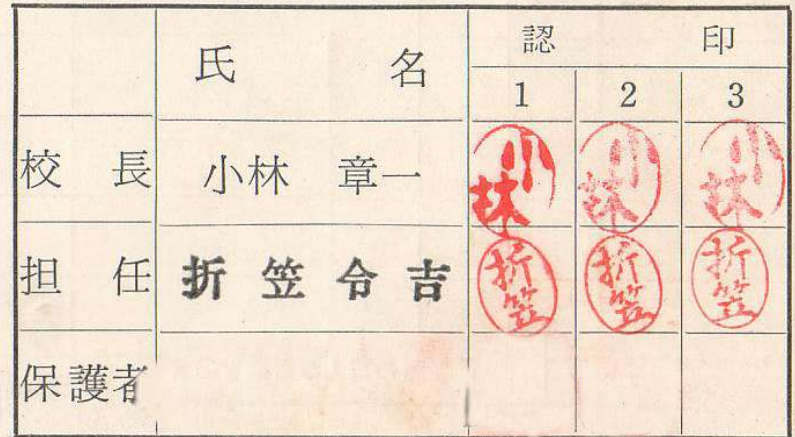 氏 名 認 印
1 2 3
校 長 小林 章一 小林 小林 小林
担 任 折 笠 令 吉 折笠 折笠 折笠
保護者